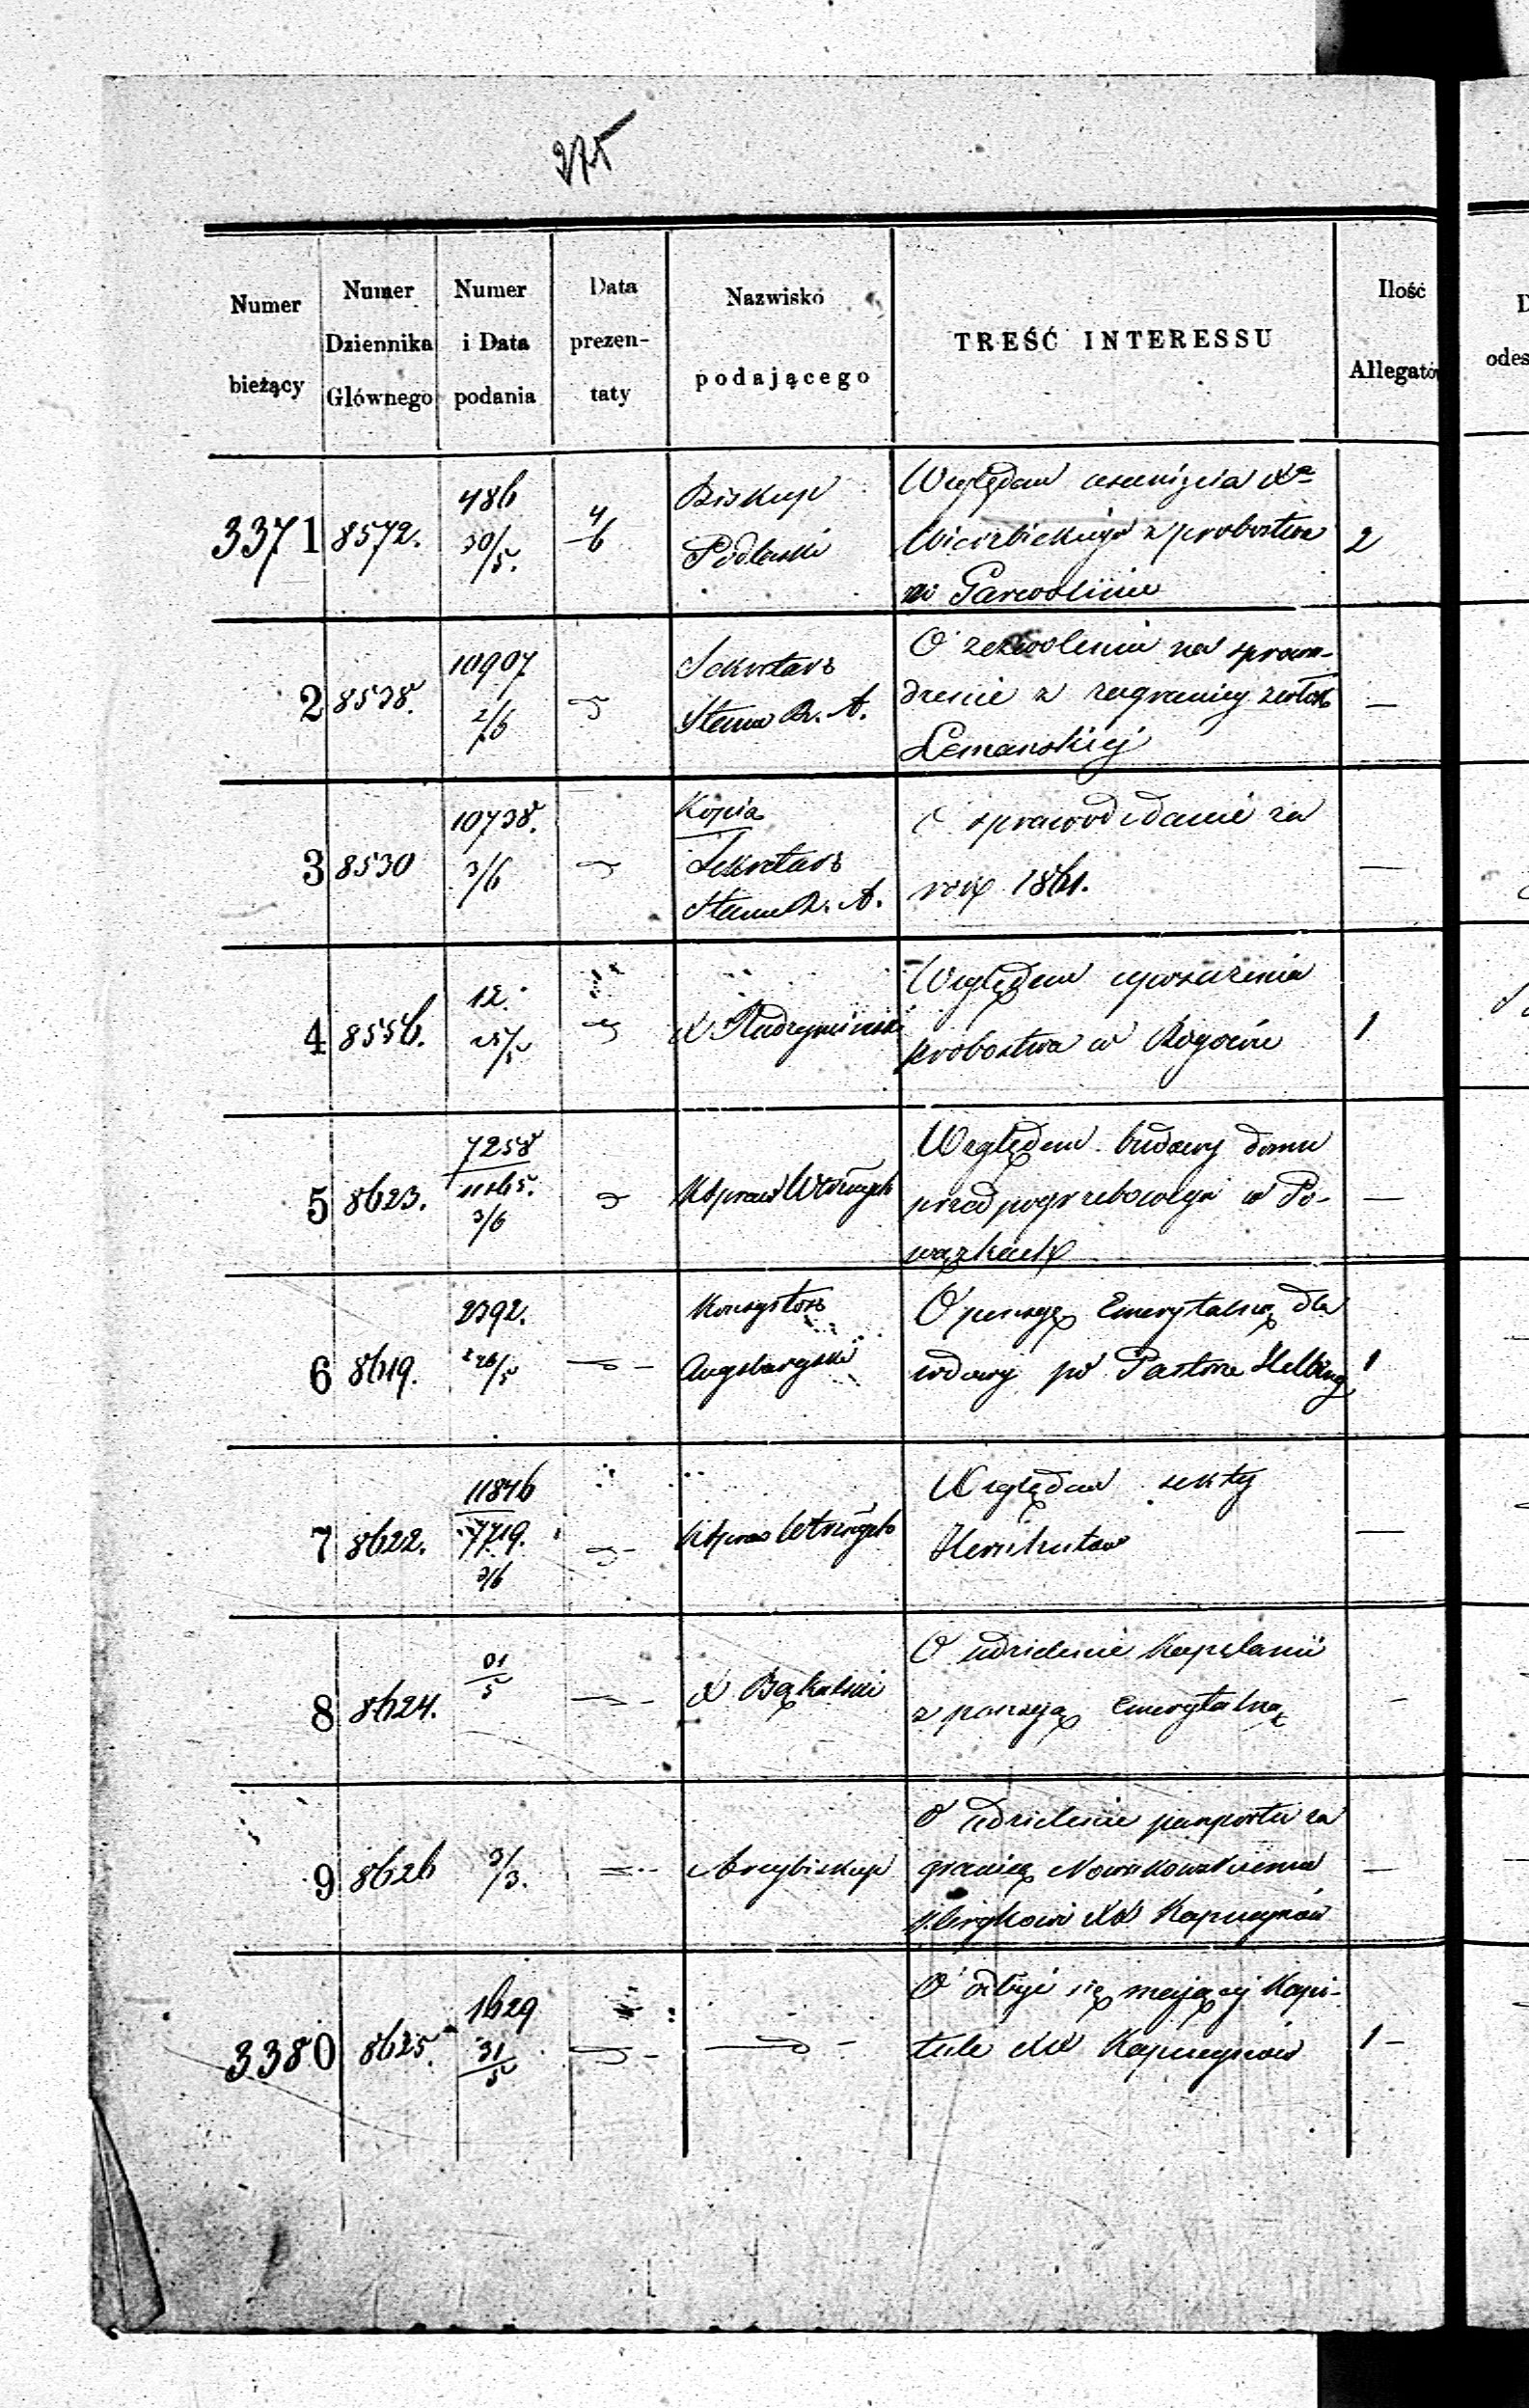 275
Numer bieżący
Numer Dziennika Głównego
Numer i Data podania
Data prezen- taty
Nazwisko podającego
TREŚĆ INTERESSU
Ilość Allegatów
3371 8572. 486 30/5. 4/6 Biskup Podlaski
Względem usunięcia Xa
Wierzbickiego z probostwa
w Garwolinie
2
2 8538. 10907 2/6 Sekretarz
Stanu R. A.
O zezwolenie na sprowa-
dzenie z zagranicy zwłok
Lemanskiej
—
3 8530 10738. 3/6 Kopia
Sekretarz
Stanu R. A.
O sprawozdanie za
rok 1861.
—
4 8556. 12. 25/5 X Radzymiński
Względem opuszczenia
probostwa w Rogowie
1
5 8623. 7258 3/6 K Spraw Wewnętrz
Względem budowy domu
przedpogrzebowego w Po-
wązkach
—
6 8619. 2392. 26/5 Konsystorz
Augsburgski
O pensyę Emerytalną dla
wdowy po Pastorze Helbing
1
7 8622. 11846 7719. 3/6 K Spraw Wewnętrz
Względem sekty
Hernhutów
—
8 8624. 31/5 X Bąkalski
O udzielenie Kapelanii
z pensyą Emerytalną
-
9 8626 3/3. Arcybiskup
O udzielenie paszportu za
granicę Nowakowskiemu
XX Kapucynów
—
3380 8625. 1629 31/5
O odbyć się mającej Kapi-
tule XX Kapucynów
1 -
D
odes